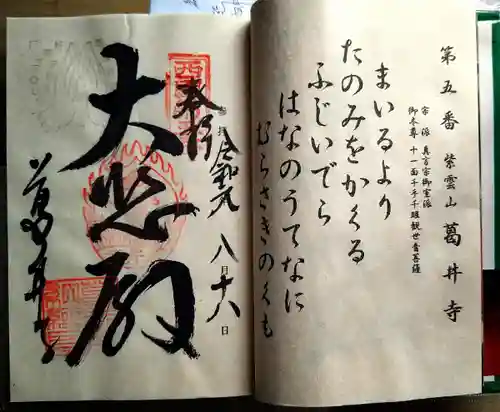 第五番 紫雲山 葛井寺
宗派 真言宗御室派
御本尊 十一面千手千眼観世音菩薩
まいるより
たのみをかくる
ふじいでら
はなのうてなに
むらさきのくも
奉拝
令和元 八月十八日
大悲殿
葛井寺